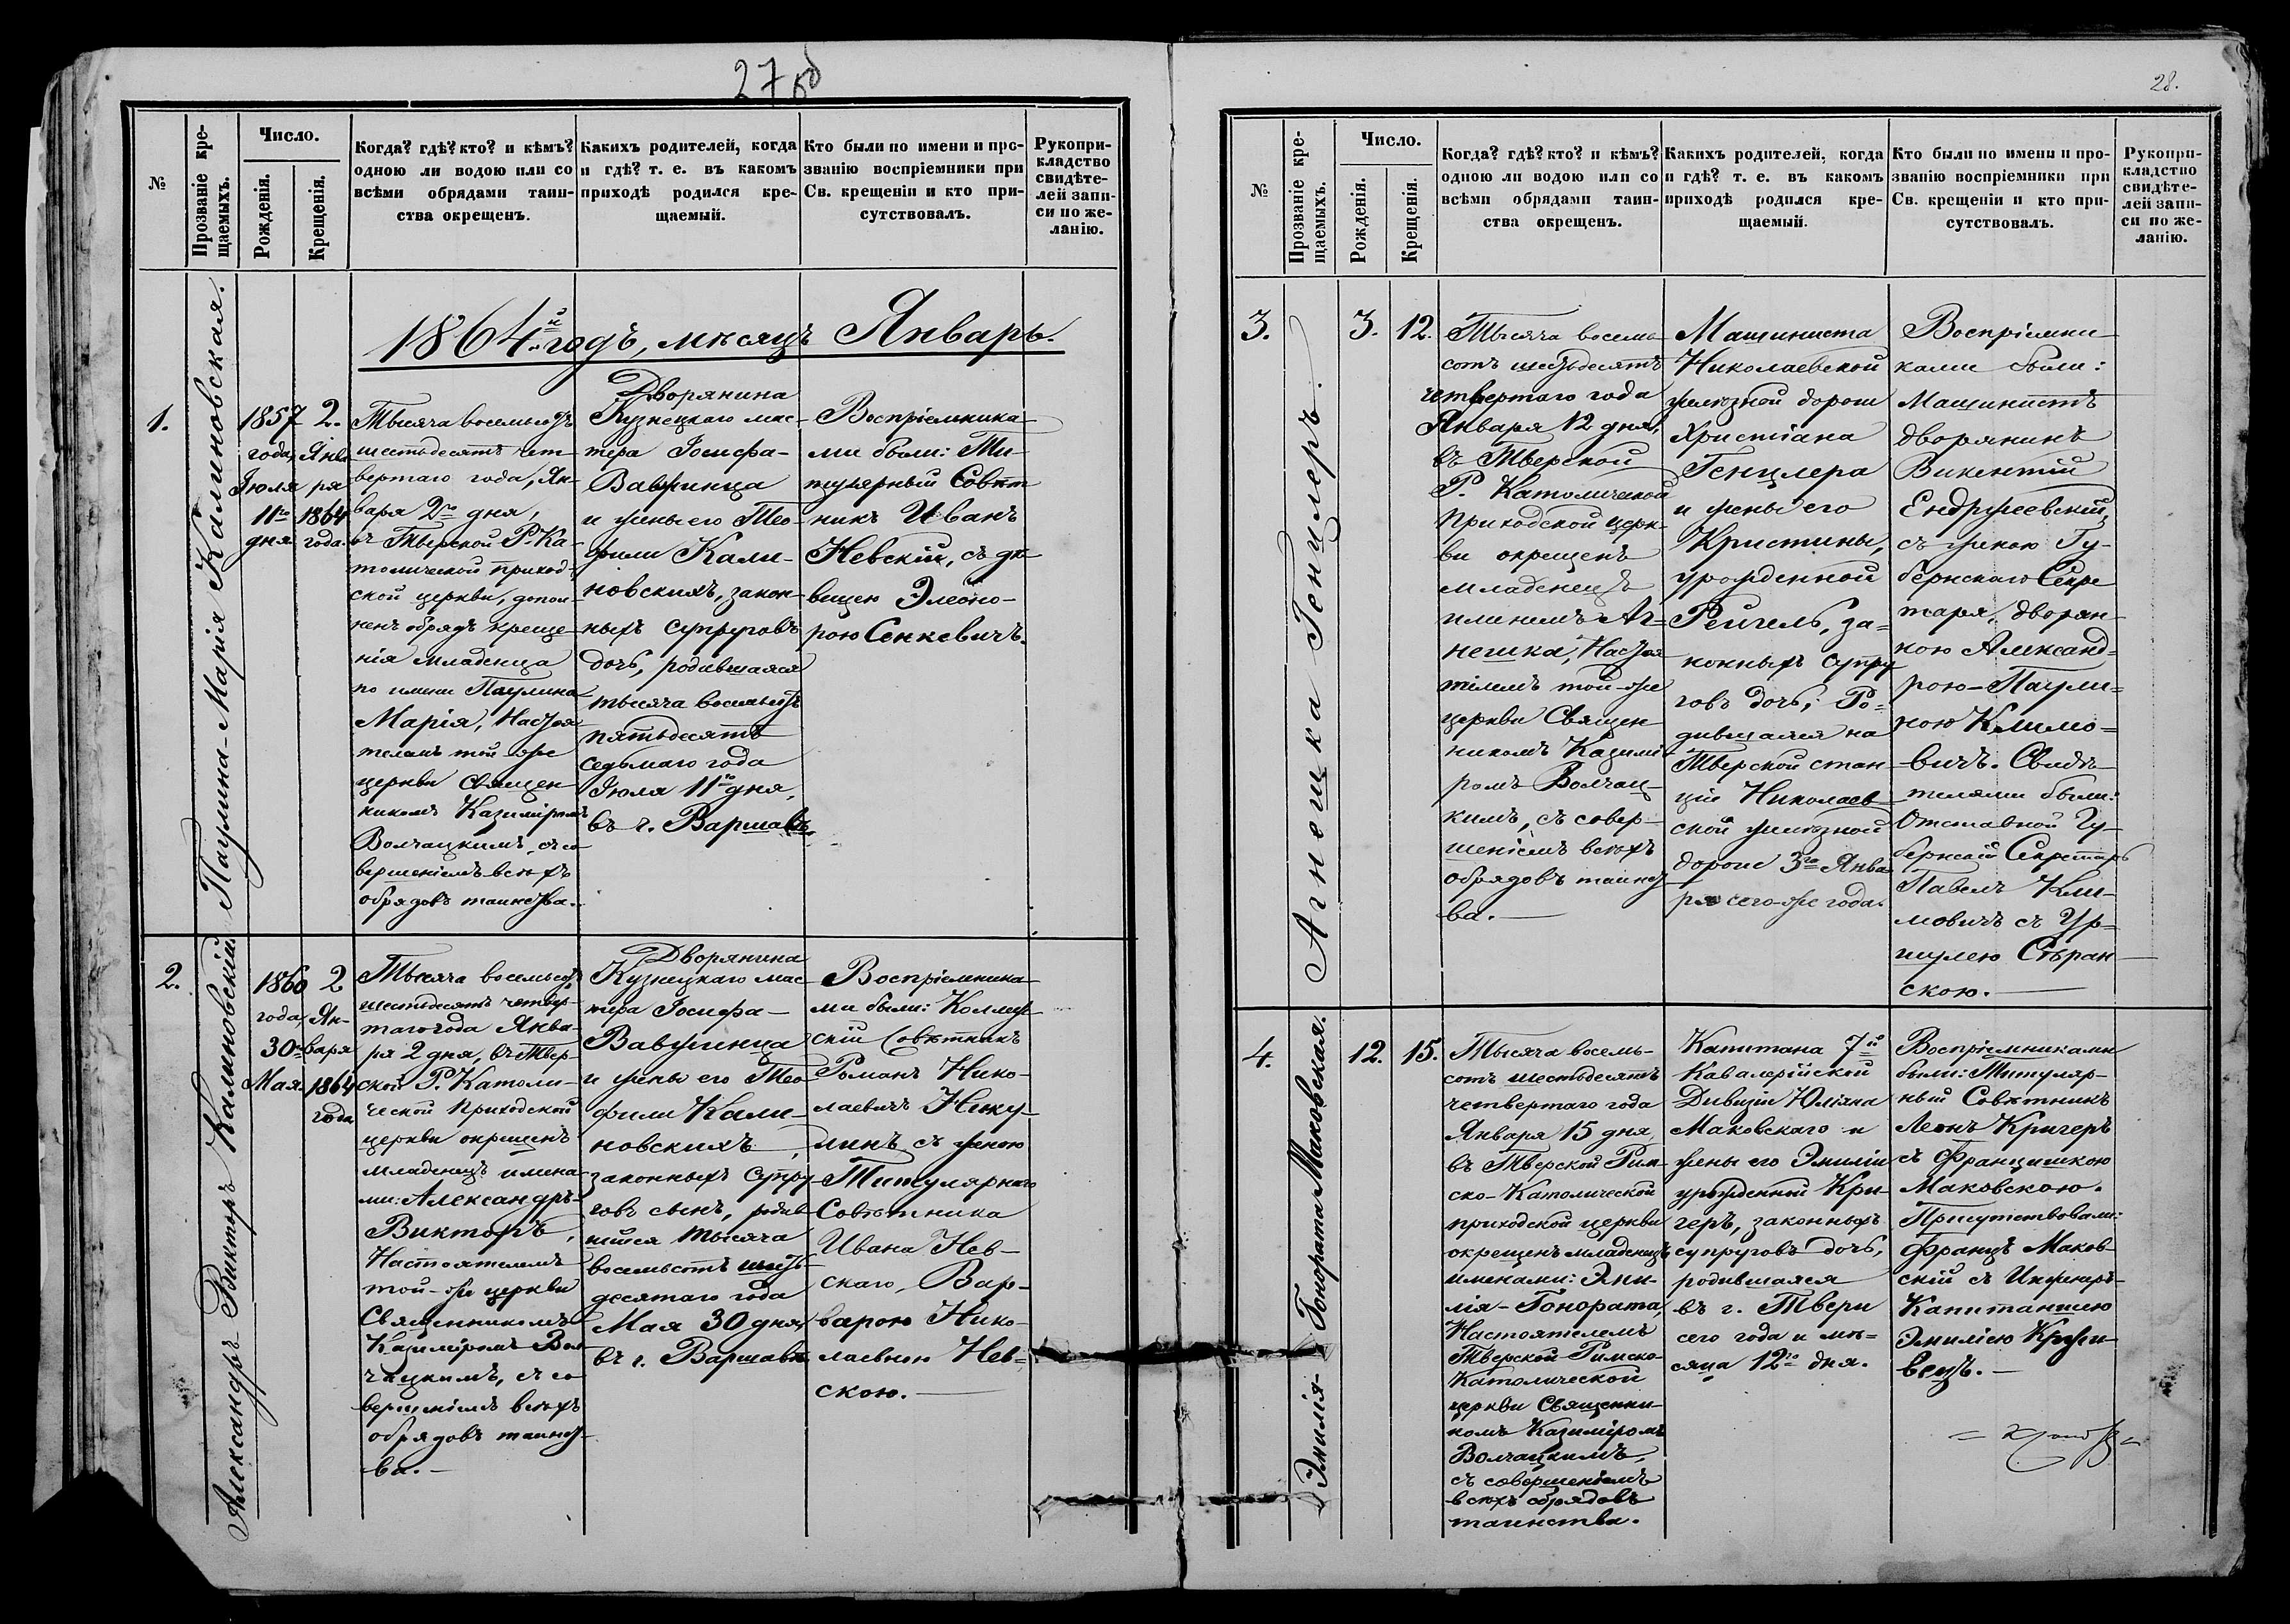 27 об
№
Прозваніе кре-
щаемыхъ.
Число.
Рожденія.
Крещенія.
Когда? гдѣ? кто? и кѣмъ?
одною ли водою или со
всѣми обрядами таин-
ства окрещенъ.
Какихъ родителей, когда
и гдѣ? т. е. въ какомъ
приходѣ родился кре-
щаемый.
Кто были по имени и про-
званію воспріемники при
Св. крещеніи и кто при-
сутствовалъ.
Рукопри-
кладство
свидѣте-
лей запи-
си по же-
ланію.
1864й годъ, мѣсяцъ Январь.
1.
Паулина-Марія Калиновская.
1857
года,
Іюля
11го
дня
2.
Янва
ря
1864
года.
Тысяча восемьсотъ
шестьдесятъ чет-
вертаго года, Ян-
варя 2го дня,
въ Тверской Р. Ка-
толической приход-
ской церкви, допол-
ненъ обрядъ креще-
нія младенца
по имени Паулина
Марія, Настоя-
телемъ той-же
церкви Священ-
никомъ Казиміромъ
Волчацкимъ, съ со-
вершеніемъ всѣхъ
обрядовъ таинства.
Дворянина
Кузнецкаго мас-
тера Іосифа-
Вавжинца
и жены его Тео-
фили Кали-
новскихъ, закон-
ныхъ супруговъ
дочь, родившаяся
тысяча восемьсотъ
пятьдесятъ
седьмаго года
Іюля 11го дня,
въ г. Варшавѣ.
Воспріемника-
ми были: Ти-
тулярный Совѣт-
никъ Иванъ
Невскій, съ дѣ-
вицею Элеоно-
рою Сенкевичъ.
2.
Александръ-Викторъ Калиновскій.
1860
года,
30го
Мая.
2
Ян-
варя
1864
года
Тысяча восемьсотъ
шестьдесятъ четвер-
таго года Янва-
ря 2 дня, въ Твер-
ской Р. Католи-
ческой Приходской
церкви окрещенъ
младенецъ имена-
ми: Александръ-
Викторъ,
Настоятелемъ
той-же церкви
Священникомъ
Казиміромъ Вол-
чацкимъ, съ со-
вершеніемъ всѣхъ
обрядовъ таинст-
ва.
Дворянина
Кузнецкаго мас-
тера Іосифа-
Вавжинца
и жены его Тео-
фили Кали-
новскихъ,
законныхъ супру-
говъ сынъ, родив-
шійся тысяча
восемьсотъ шесть-
десятаго года
Мая 30 дня,
въ г. Варшавѣ.
Воспріемника-
ми были: Коллеж-
скій Совѣтникъ
Романъ Нико-
лаевичъ Нику-
линъ съ женою
Титулярнаго
Совѣтника
Ивана Нев-
скаго, Вар-
варою Нико-
лаевною Нев-
скою.
28.
№
Прозваніе кре-
щаемыхъ.
Число.
Рожденія.
Крещенія.
Когда? гдѣ? кто? и кѣмъ?
одною ли водою или со
всѣми обрядами таин-
ства окрещенъ.
Какихъ родителей, когда
и гдѣ? т. е. въ какомъ
приходѣ родился кре-
щаемый.
Кто были по имени и про-
званію воспріемники при
Св. крещеніи и кто при-
сутствовалъ.
Рукопри-
кладство
свидѣте-
лей запи-
си по же-
ланію.
3.
Агнешка Генцлеръ.
3.
12.
Тысяча восемь-
сотъ шестьдесятъ
четвертаго года
Января 12 дня,
въ Тверской
Р. Католической
Приходской церк-
ви окрещенъ
младенецъ
именемъ Аг-
нешка, Настоя-
телемъ той-же
церкви Священ-
никомъ Казими-
ромъ Волчац-
кимъ, съ совер-
шеніемъ всѣхъ
обрядовъ таинст-
ва.
Машиниста
Николаевской
желѣзной дороги
Христіана
Генцлера
и жены его
Кристины,
урожденной
Рейгель, за-
конныхъ супру-
говъ дочь, Ро-
дившаяся на
Тверской стан-
ціи Николаев-
ской желѣзной
дороги 3го Янва-
ря сего-же года.
Воспріемни-
ками были:
Машинистъ
дворянинъ
Викентій
Ендржеевскій,
съ женою Гу-
бернскаго Секре-
таря, дворян-
кою Александ-
рою-Паули-
ною Климо-
вичъ. Свидѣ-
телями были:
Отставной Гу-
бернскій Секретарь
Павелъ Кли-
мовичъ съ Ур-
шулею Стран-
скою.
4.
Эмилія-Гонората Маковская.
12.
15.
Тысяча восемь-
сотъ шестьдесятъ
четвертаго года
Января 15 дня,
въ Тверской Рим-
ско-Католической
приходской церкви
окрещенъ младенецъ
именами: Эми-
лія-Гонората,
Настоятелемъ
Тверской Римско-
Католической
церкви Священни-
комъ Казиміромъ
Волчацкимъ,
съ совершеніемъ
всѣхъ обрядовъ
таинства.
Капитана 7й
Кавалерійской
Дивизіи Юліана
Маковскаго и
жены его Эмиліи
урожденной Кри-
геръ, законныхъ
супруговъ дочь,
родившаяся
въ г. Твери
сего года и мѣ-
сяца 12го дня.
Воспріемниками
были: Титуляр-
ный Совѣтникъ
Леонъ Кригеръ
съ Францишкою
Маковскою.
Присутствовали:
Францъ Маков-
скій съ Инженеръ-
Капитаншею
Эмиліею Кржи-
вецъ.